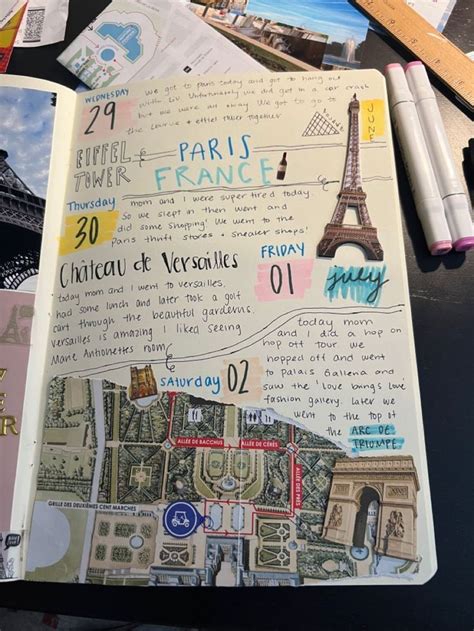 WEDNESDAY
29
we got to paris today and got to hang out
with Liv. Unfortunately we did get in a car crash
but we were all okay. We got to go to
the Louvre + eiffel tower together
JUNE
EIFFEL
TOWER
PARIS
FRANCE
Thursday
30
mom and I were super tired today.
So we slept in then went and
did some shopping! We went to the
Paris thrift stores + sneaker shops!
Château de Versailles
FRIDAY
01
july
today mom and I went to versailles.
had some lunch and later took a golf
cart through the beautiful gardens.
versailles is amazing I liked seeing
Marie Antionettes room
SATURDAY
02
today mom
and I did a hop on
hop off tour. we
hopped off and went
to palais Galliera and
saw the 'love brings love'
fashion gallery. Later we
went to the top of
the ARC DE
TRIOMPHE.
ALLÉE DE BACCHUS
ALLÉE DE CÉRÈS
GRILLE DES DEUXIÈMES CENT MARCHES